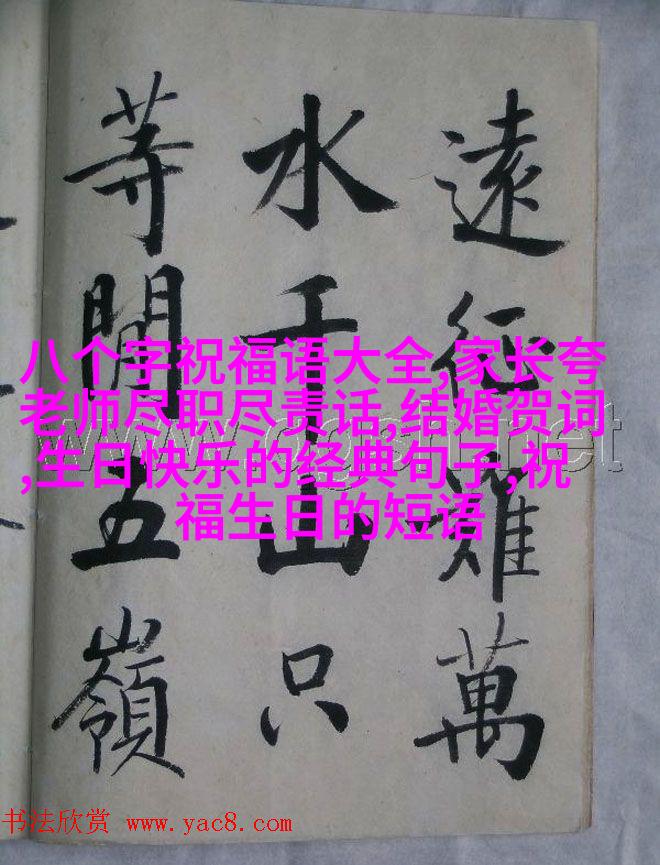 遠征難萬
水千山只
等閒五嶺
八个字祝福语大全,家长夸
老师尽职尽责话,结婚贺词
,生日快乐的经典句子,祝
福生日的短语
书法欣赏 www.yac8.com